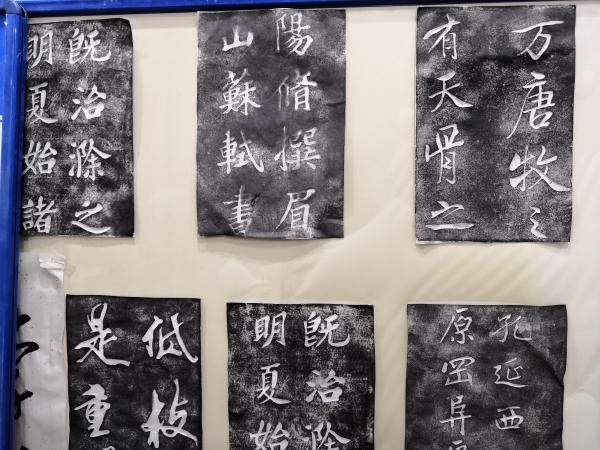 既治滁之
明夏始諸
陽脩撰眉
山蘇軾書
万唐牧之
有天骨之
低枝
是重
既治滁
明夏始
孔延西
原